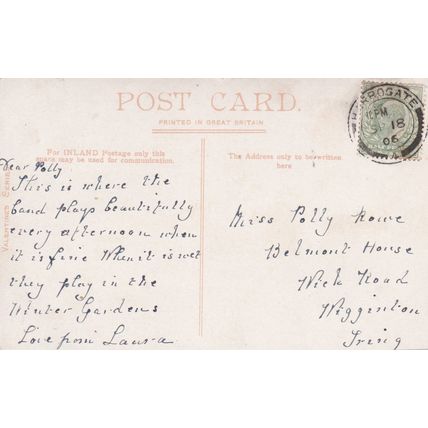 POST CARD.
PRINTED IN GREAT BRITAIN
For INLAND Postage only this
space may be used for communication.
The Address only to be written
here
VALENTINE'S SERIES
HARROGATE
PM
18
06
Dear Polly
This is where the
band plays beautifully
every afternoon when
it is fine When it is wet
they play in the
Winter Gardens
Love from Laura
Miss Polly Rowe
Belmont House
Wick Road
Wigginton
Tring